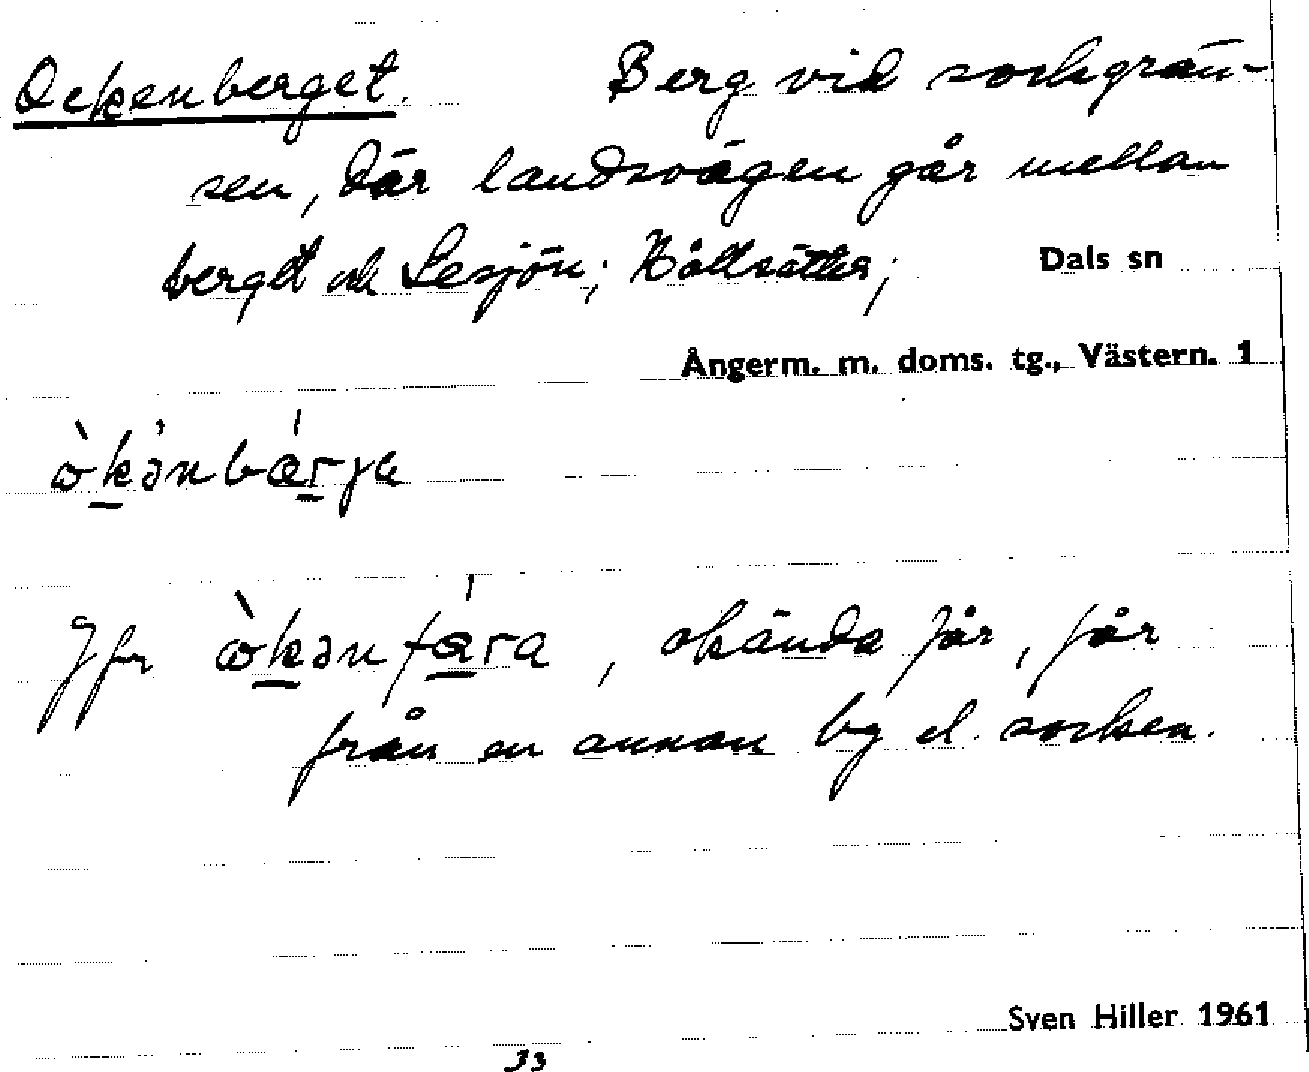 Ockenberget. Berg vid sockgrän-
sen, där landsvägen går mellan
berget och Lesjön; Hållsätter; Dals sn
Ångerm. m. doms. tg., Västern. 1
ò̀kənbárja
Jfr ò̀kənfára, okända får, får
från en annan by el. socken.
Sven Hiller 1961
33